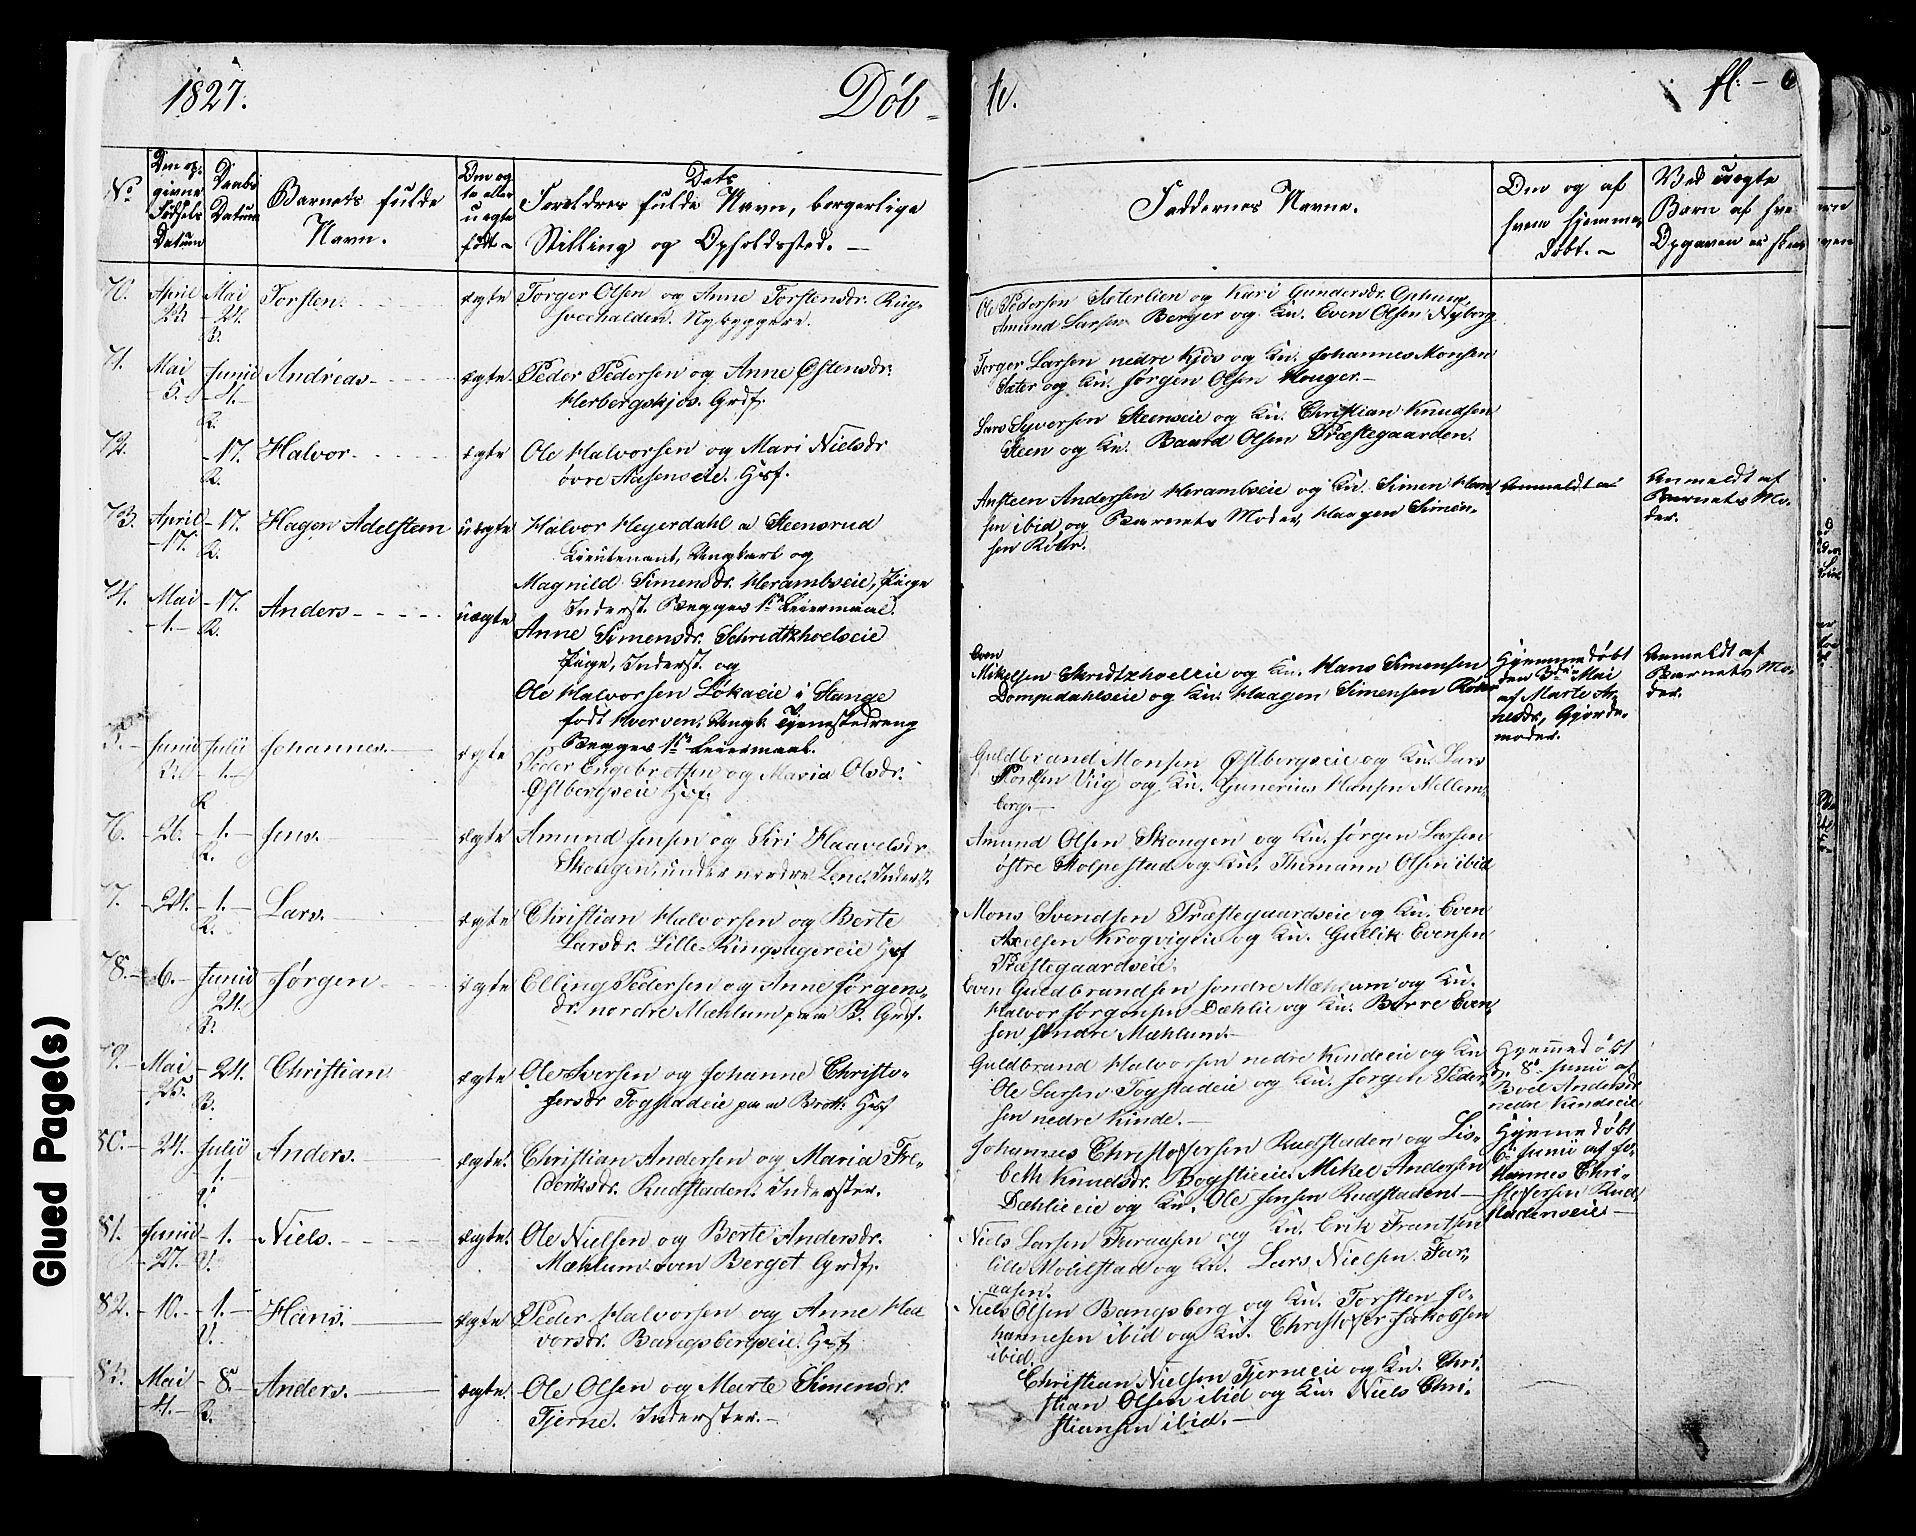 1827.
Døb-
te.
fl: - 6
No
Den op-
givne
Fødsels
Datum
Daabs
Datum
Barnets fulde
Navn.
Om æg-
te eller
uægte
født
Dets
Foreldres fulde Navn, borgerlige
Stilling og Opholdssted.
Faddernes Navne.
Om og af
hvem hjemme-
døbt.
Ved uægte
Barn af hve
Opgaven er skee
70.
April
Mai
24.
R.
Torsten.
ægte
Torger Olsen og Anne Torstensdr.
Nybyggere.
Ole Pedersen Sæterlien og Kari Gundersdr. Ophuug,
Amund Larsen Berger og Ku. Even Olsen Nyberg
71.
Mai
5.
Junii
4.
R.
Andreas
ægte.
Peder Pedersen og Anne Østensdr:
Herbergskjøs. Grdf.
Torger Larsen nedre Kjøs og Ku. Johannes Monsen
Sæter og Ku. Jørgen Olsen Houger.
72.
-17.
R.
Halvor
ægte
Ole Halvorsen og Mari Nielsdr
øvre Aasenseie. Hsf.
Lars Syversen Steenseie og Ku. Christian Knudsen
Steen og Ku. Baard Olsen Præstegaarden.
73.
April
-17.
-17.
R.
Hagen Adelsteen
uægte
Halvor Heyerdahl a Steensrud
Lieutenant, Ungkarl og
Magnild Simensdr. Herambseie, Pige
Inderst. Begges 1ste Leiermaal.
Ansteen Andersen Herambseie og Ku. Simen Han-
sen ibid og Barnets Moder, Haagen Simen-
sen
Anmeldt a
Anmeldt af
Barnets Mo-
der.
74.
Mai
-1.
-17.
R.
Anders
uægte
Anne Simensdr.
Pige, Inderst og
Ole Halvorsen Løkaeie i Stange
født Hverven, Ungk. Tjenestedreng
Begges 1ste Leiermaal.
Even
Mikelsen og Ku. Hans Simensen
Dompedahlseie og Ku. Haagen Simensen
Hjemmedøbt
den 3die Mai
af Marte Ar-
nesdr, Gjorde-
moder.
Anmeldt af
Barnets Mo-
der.
5.
Junii
Julii
-1.
R
Johannes.
ægte
Peder Engebretsen og Maria Olsdr.
Østbergseie Hsf.
Guldbrand Monsen Østbergseie og Ku. Lars
Viig og Ku. Gunerius Hansen Mellem-
berg.
76.
-26.
-1.
R.
Jens.
ægte
Amund Jensen og Siri Haavelsdr.
Skougen, under nordre Lene. Inderst.
Amund Olsen Skougen og Ku. Jørgen Larsen
østre Stolpestad og Ku. Thimann Olsen ibid
77.
-24.
-1.
R.
Lars.
ægte
Christian Halvorsen og Berte
Larsdr. Lille-Ringsagereie Hsf
Mons Svendsen Præstegaardseie og Ku. Even
Axelsen Krogvigeie og Ku. Gullik Evensen
Præstegaardseie.
78.
6.
Junii
24.
R.
Jørgen
ægte
Elling Pedersen og Anne Jørgens-
dr. nordre Mæhlum paa B. Grdf.
Even Guldbrandsen søndre Mæhlum og Ku.
Halvor Jørgensen Dæhlie og Ku. Børre Even-
sen søndre Mæhlum.
79.
Mai
25.
-24.
B.
Christian
ægte
Ole Iversen og Johanne Christo-
fersdr Togstadeie paa Brøtt. Hsf
Guldbrand Halvorsen nedre Kindeeie og Ku
Ole Larsen Togstadeie og Ku. Jørgen Peder-
sen nedre Kinde.
Hjemmedøbt
D. 8de Junii af
Boel Andersdr
nedre Kindeeie
80.
24.
Julii
1.
Anders.
ægte.
Christian Andersen og Maria Fre-
deriksdr. Rudstaden. Inderster.
Johannes Christofersen Rudstaden og Lis-
beth Knudsdr. Bogstieie. Mikel Andersen
Dæhlieeie og Ku. Ole Jensen Rudstaden
Hjemmedøbt
6te Junii af Jo-
hannes Chri-
stofersen Rud
stadenseie.
81.
Junii
27.
-1.
V.
Niels.
ægte.
Ole Nielsen og Berte Andersdr.
Mæhlum oven Berget Grdf.
Niels Larsen Furaasen og Ku. Erik Frantsen
lille Molilstad og Ku. Lars Nielsen Fur-
aasen.
82.
-10.
-1.
V.
Hans.
ægte
Peder Halvorsen og Anne Hal
vorsdr. Bangsbergseie. Hsf
Niels Olsen Bangsberg og Ku. Torsten Jo-
hannesen ibid og Ku. Christofer Jakobsen
ibid.
83.
Mai
4.
8.
R.
Anders.
ægte.
Ole Olsen og Marte Simensdr.
Tjerne. Inderster.
Christian Nielsen Tjerneeie og Ku. Chri-
stian Olsen ibid og Ku. Niels Chri-
stiansen ibid.
Glued Page(s)